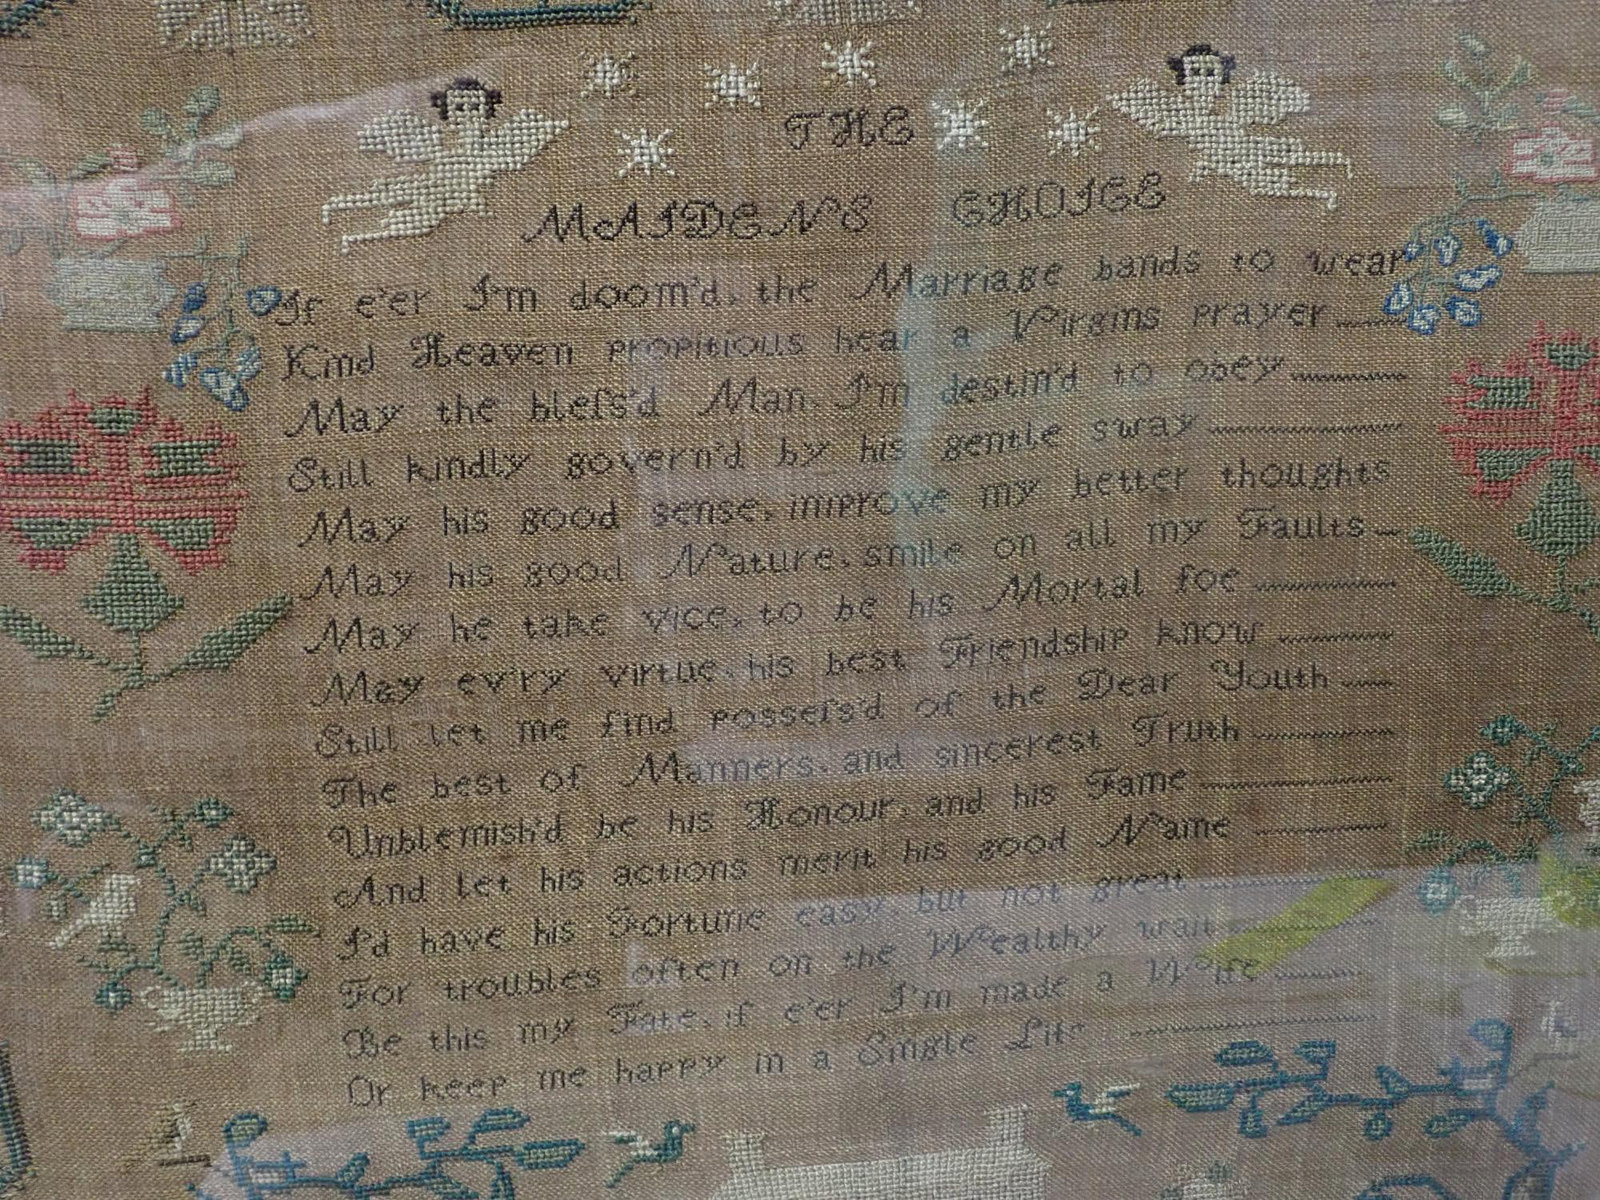 THE
MAIDENS CHOICE
If e'er I'm doom'd, the Marriage bands to wear
Kind Heaven propitious hear a Virgins prayer
May the bleſs'd Man I'm destin'd to obey
Still kindly govern'd by his gentle sway
May his good sense, improve my better thoughts
May his good Nature, smile on all my Faults
May he take vice, to be his Mortal foe
May ev'ry virtue his best Friendship know
Still let me find poſseſs'd of the Dear Youth
The best of Manners, and sincerest Truth
Unblemish'd be his Honour, and his Fame
And let his actions merit his good Name
I'd have his Fortune easy, but not great
For troubles often on the Wealthy wait
Be this my Fate, if e'er I'm made a Wife
Or keep me happy in a Single Life